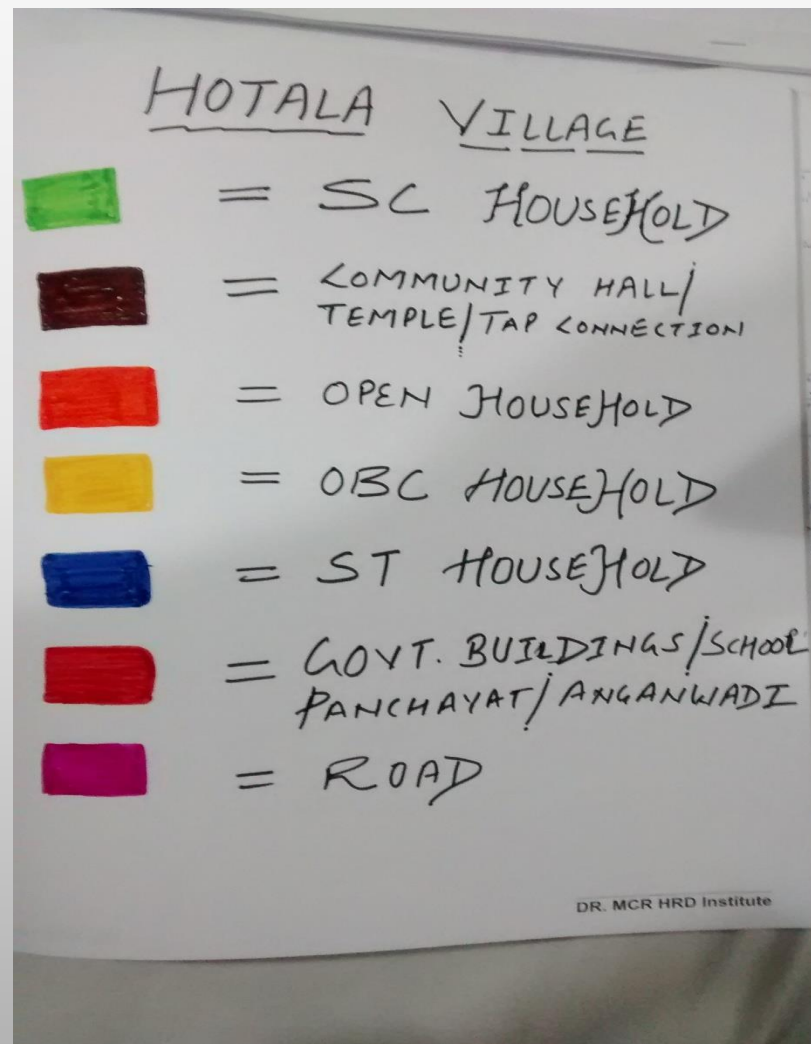 HOTALA VILLAGE
= SC HOUSEHOLD
= COMMUNITY HALL/
TEMPLE/TAP CONNECTION
= OPEN HOUSEHOLD
= OBC HOUSEHOLD
= ST HOUSEHOLD
= GOVT. BUILDINGS/SCHOOL
PANCHAYAT/ANGANWADI
= ROAD
DR. MCR HRD Institute